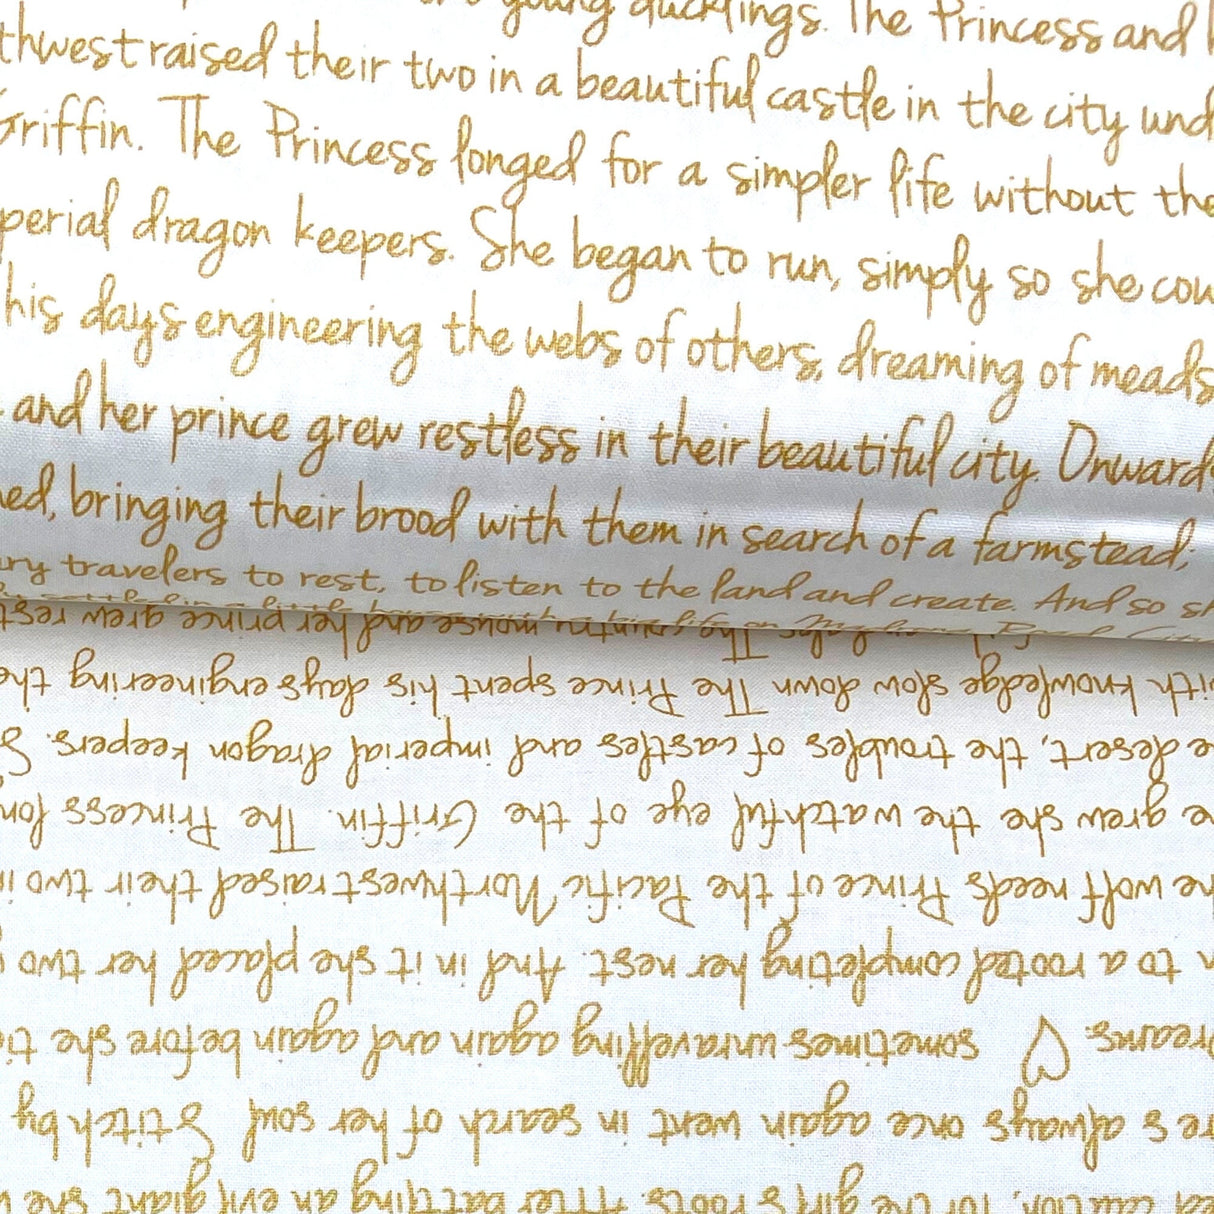 young ducklings. The Princess and
thwest raised their two in a beautiful castle in the city und
Griffin. The Princess longed for a simpler life without the
perial dragon keepers. She began to run, simply so she cou
his days engineering the webs of others, dreaming of meads
and her prince grew restless in their beautiful city. Onward
ed, bringing their brood with them in search of a farmstead,
ry travelers to rest, to listen to the land and create. And so sh
caution, for the girl's roots. After battling an evil giant she
re's always once again went in search of her soul. Stitch by
reams. ♡ sometimes unravelling again and again before she ti
to a rooted completing her nest. And in it she placed her two
he wolf needs Prince of the Pacific Northwest raised their two i
e grew she the watchful eye of the Griffin. The Princess lon
e desert, the troubles of castles and imperial dragon keepers. S
ith knowledge slow down. The Prince spent his days engineering the
The mountain mouse and her prince grew rest